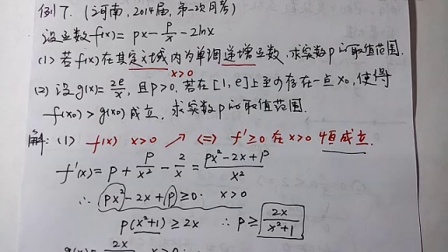 例7. (河南, 2014届, 第一次月考)
设函数f(x) = px - p/x - 2lnx
(1) 若f(x)在其定义域内为单调递增函数, 求实数p的取值范围.
x>0
(2) 设g(x) = 2e/x, 且p>0, 若在[1,e]上至少存在一点x₀, 使得
f(x₀) > g(x₀) 成立, 求实数p的取值范围.
解: (1) f(x) x>0 ↗ (=) f'≥0 在x>0 恒成立.
f'(x) = p + p/x² - 2/x = (px²-2x+p)/x²
∴ px²-2x+p≥0 x>0
p(x²+1) ≥ 2x ∴ p ≥ 2x/(x²+1)